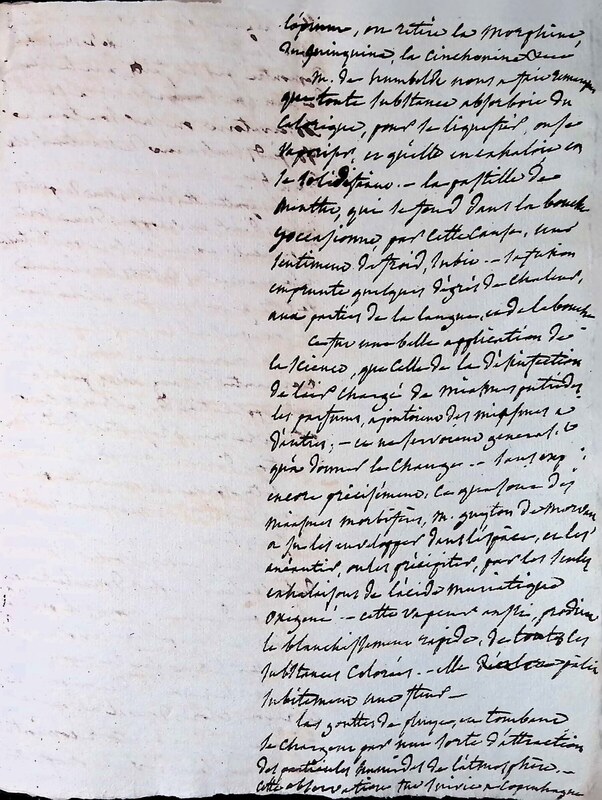 l'opium, on retire la morphine,
du quinquina, la cinchonine &c &c
M. de humboldt nous a fait remarquer
que toute substance absorboit du
Calorique, pour se liquefier, ou se
vaporiser, et qu'elle en exhaloit en
se solidifiant. — la pastille de
menthe, qui se fond dans la bouche
y occasionne, par cette cause, un
sentiment de froid, subit. — la fusion
emprunte quelques dégrés de chaleur,
aux parties de la langue, et de la bouche
C'est une belle application de
la science, que celle de la désinfection
de l'air chargé de miasmes putrides.
les parfums, ajoutoient des miasmes a
d'autres, — et ne servoient general.t
qu'à donner le change. — sans
encore précisément, ce que sont des
miasmes morbifères, M. guyton de Morveau
a su les envelopper dans l'espace, et les
anéantir, ou les précipiter, par les seules
exhalaisons de l'acide muriatique
oxigené. — cette vapeur aussi, produit
le blanchissement rapide, de toutes les
substances colorées. — elle pâlir
subitement une fleur —
les gouttes de pluye, en tombant
se chargent par une sorte d'attraction
des particules humides de l'atmosphère. —
cette observation fut suivie a Copenhague